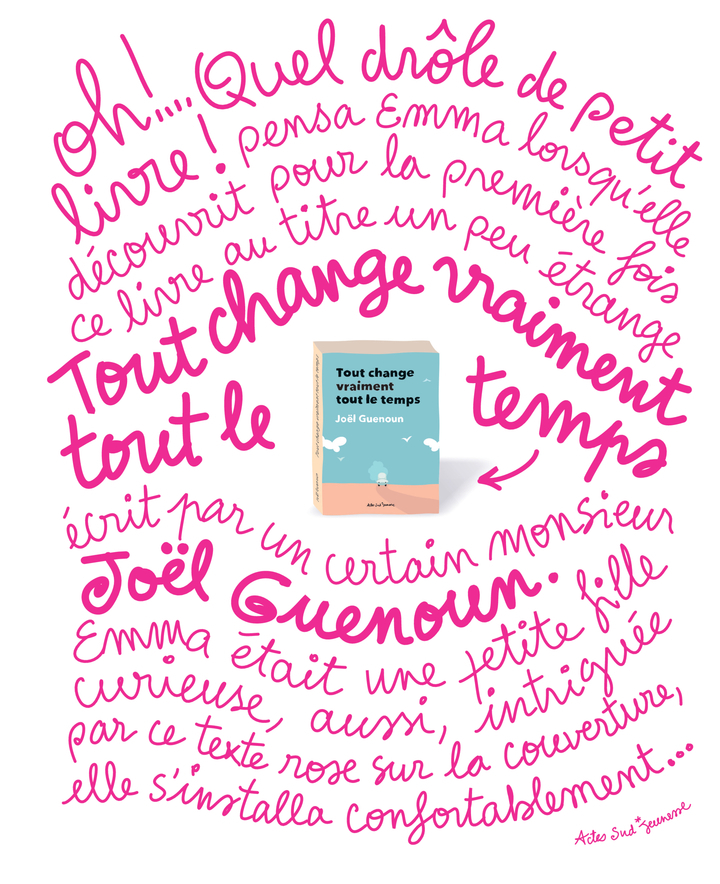 oh!....Quel drôle de petit
livre! pensa Emma lorsqu'elle
découvrit pour la première fois
ce livre au titre un peu étrange
Tout change vraiment
tout le temps
Tout change
vraiment
tout le temps
Joël Guenoun
Actes Sud jeunesse
écrit par un certain monsieur
Joël Guenoun.
Emma était une petite fille
curieuse, aussi, intriguée
par ce texte rose sur la couverture,
elle s'installa confortablement...
Actes Sud* jeunesse